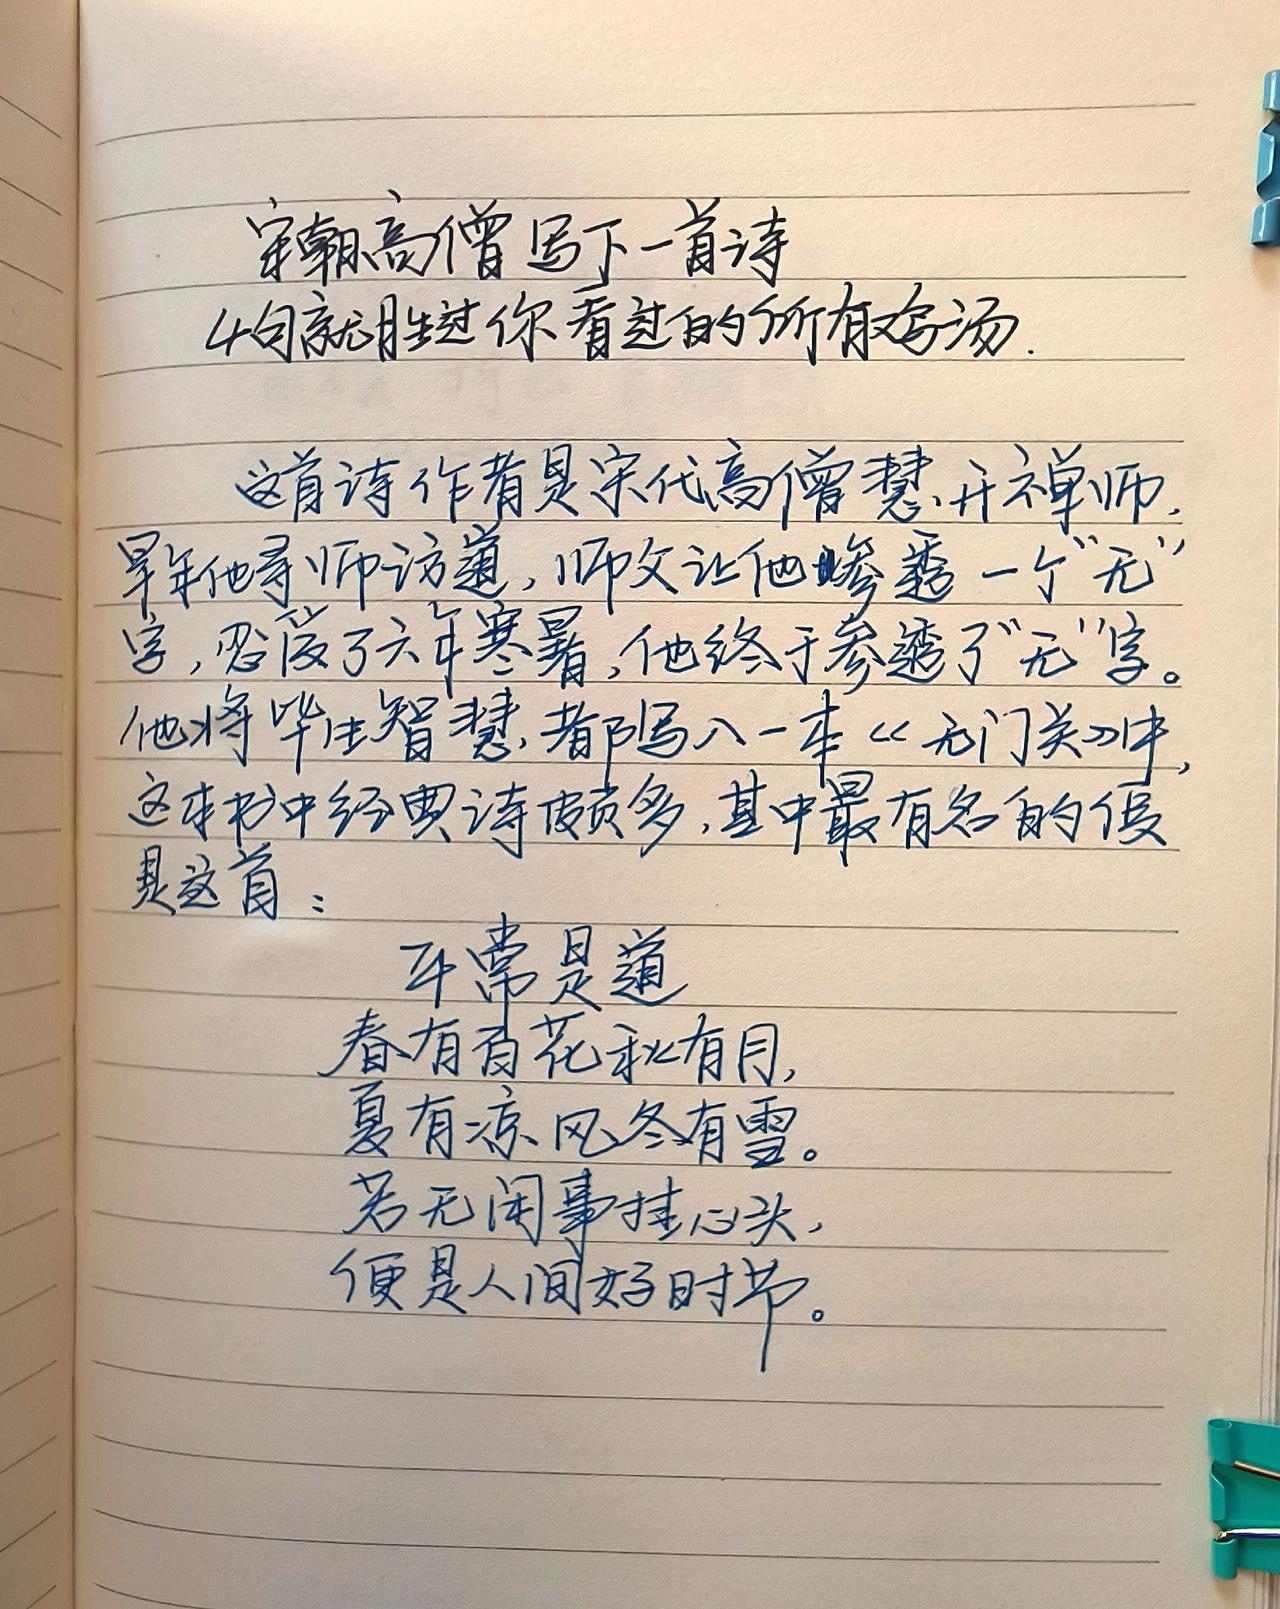 宋朝高僧写下一首诗
4句就胜过你看过的所有鸡汤.
这首诗作者是宋代高僧慧开禅师,
早年他寻师访道,师父让他参透一个“无”
字,忍受了六年寒暑,他终于参透了“无”字。
他将毕生智慧,都写入一本《无门关》中,
这本书中经典诗颇多,其中最有名的便
是这首:
平常是道
春有百花秋有月,
夏有凉风冬有雪。
若无闲事挂心头,
便是人间好时节。